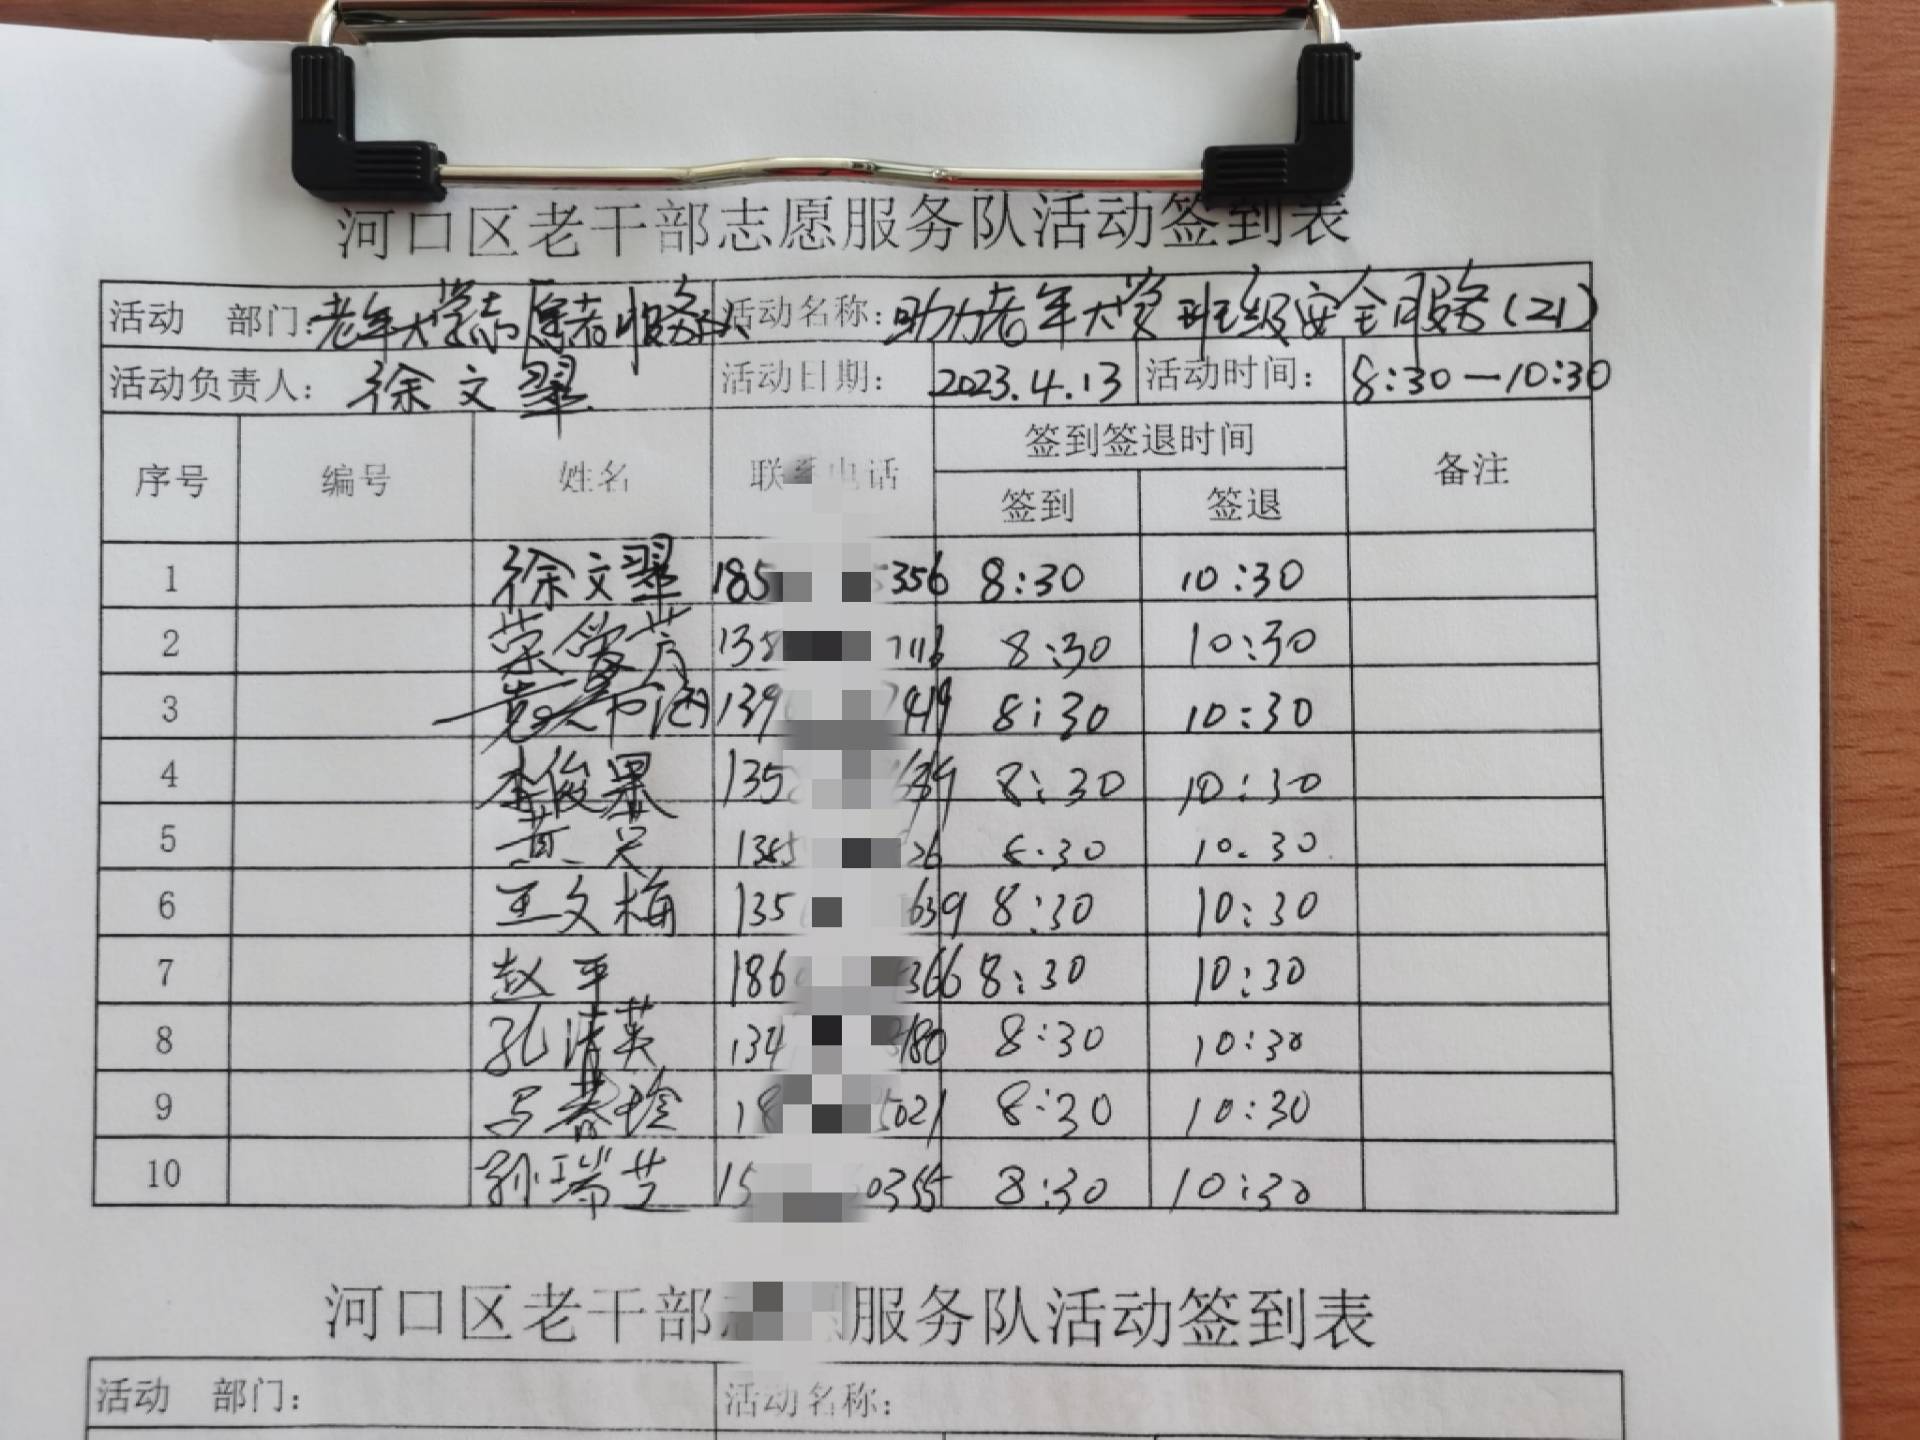 河口区老干部志愿服务队活动签到表
活动 部门：老年大学志愿者服务队 活动名称：助力老年大学班级安全服务（21）
活动负责人：徐文翠 活动日期：2023.4.13 活动时间：8:30—10:30
序号 编号 姓名 联 电话 签到签退时间 备注
签到 签退
1 徐文翠 185 5356 8:30 10:30
2 荣 芳 138 7116 8:30 10:30
3 139 7419 8:30 10:30
4 李俊 135 639 8:30 10:30
5 黄 26 8:30 10:30
6 王文梅 135 1639 8:30 10:30
7 赵平 186 5366 8:30 10:30
8 孔清英 134 180 8:30 10:30
9 马春珍 18 5021 8:30 10:30
10 孙瑞芝 15 0355 8:30 10:30
河口区老干部 服务队活动签到表
活动 部门： 活动名称：